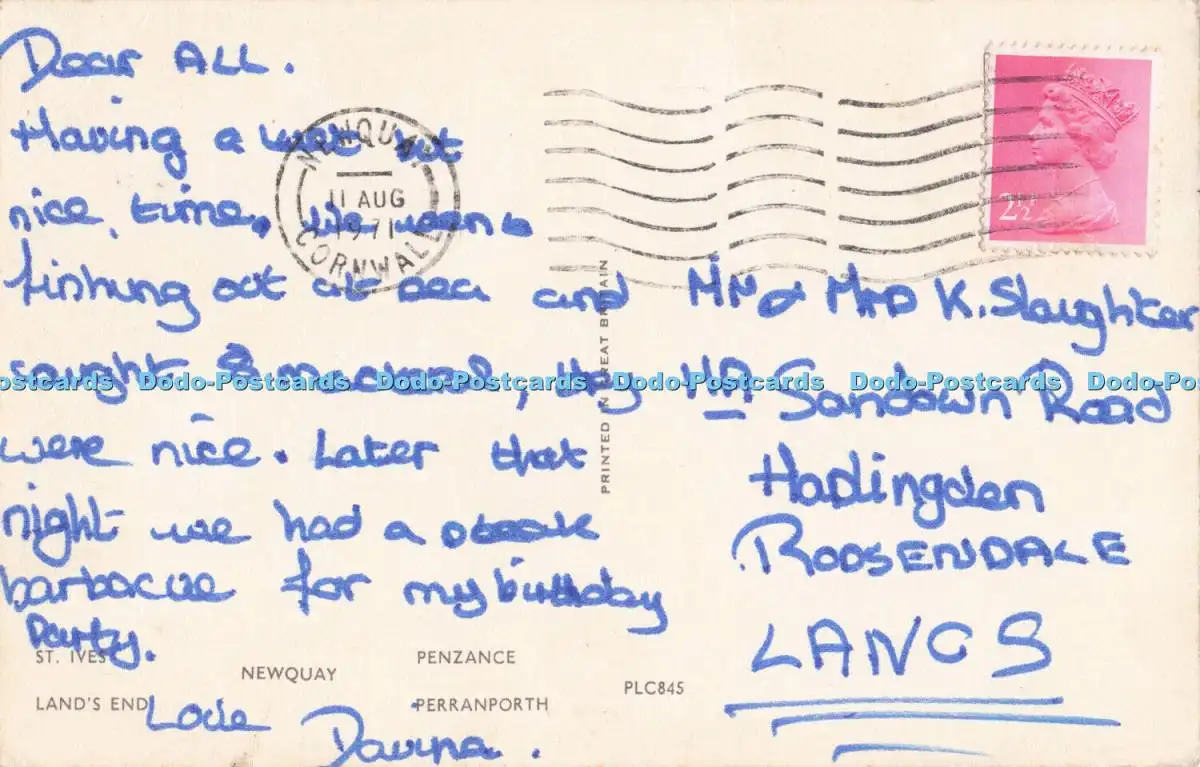 Dear ALL.
Having a wet but
nice, time, we went
fishing out at sea and
caught 8 macarel, they
were nice. Later that
night we had a steak
barbacue for my birthday
Party.
Love
Davina.
NEWQUAY
11 AUG
1971
CORNWALL
2½
Mr & Mrs K. Slaughter
Sandown Road
Haslingden
ROOSENDALE
LANCS
PRINTED IN GREAT BRITAIN
ST. IVES
NEWQUAY
PENZANCE
LAND'S END
PERRANPORTH
PLC845
Dodo-Postcards Dodo-Postcards Dodo-Postcards Dodo-Postcards Dodo-Postcards Dodo-Po